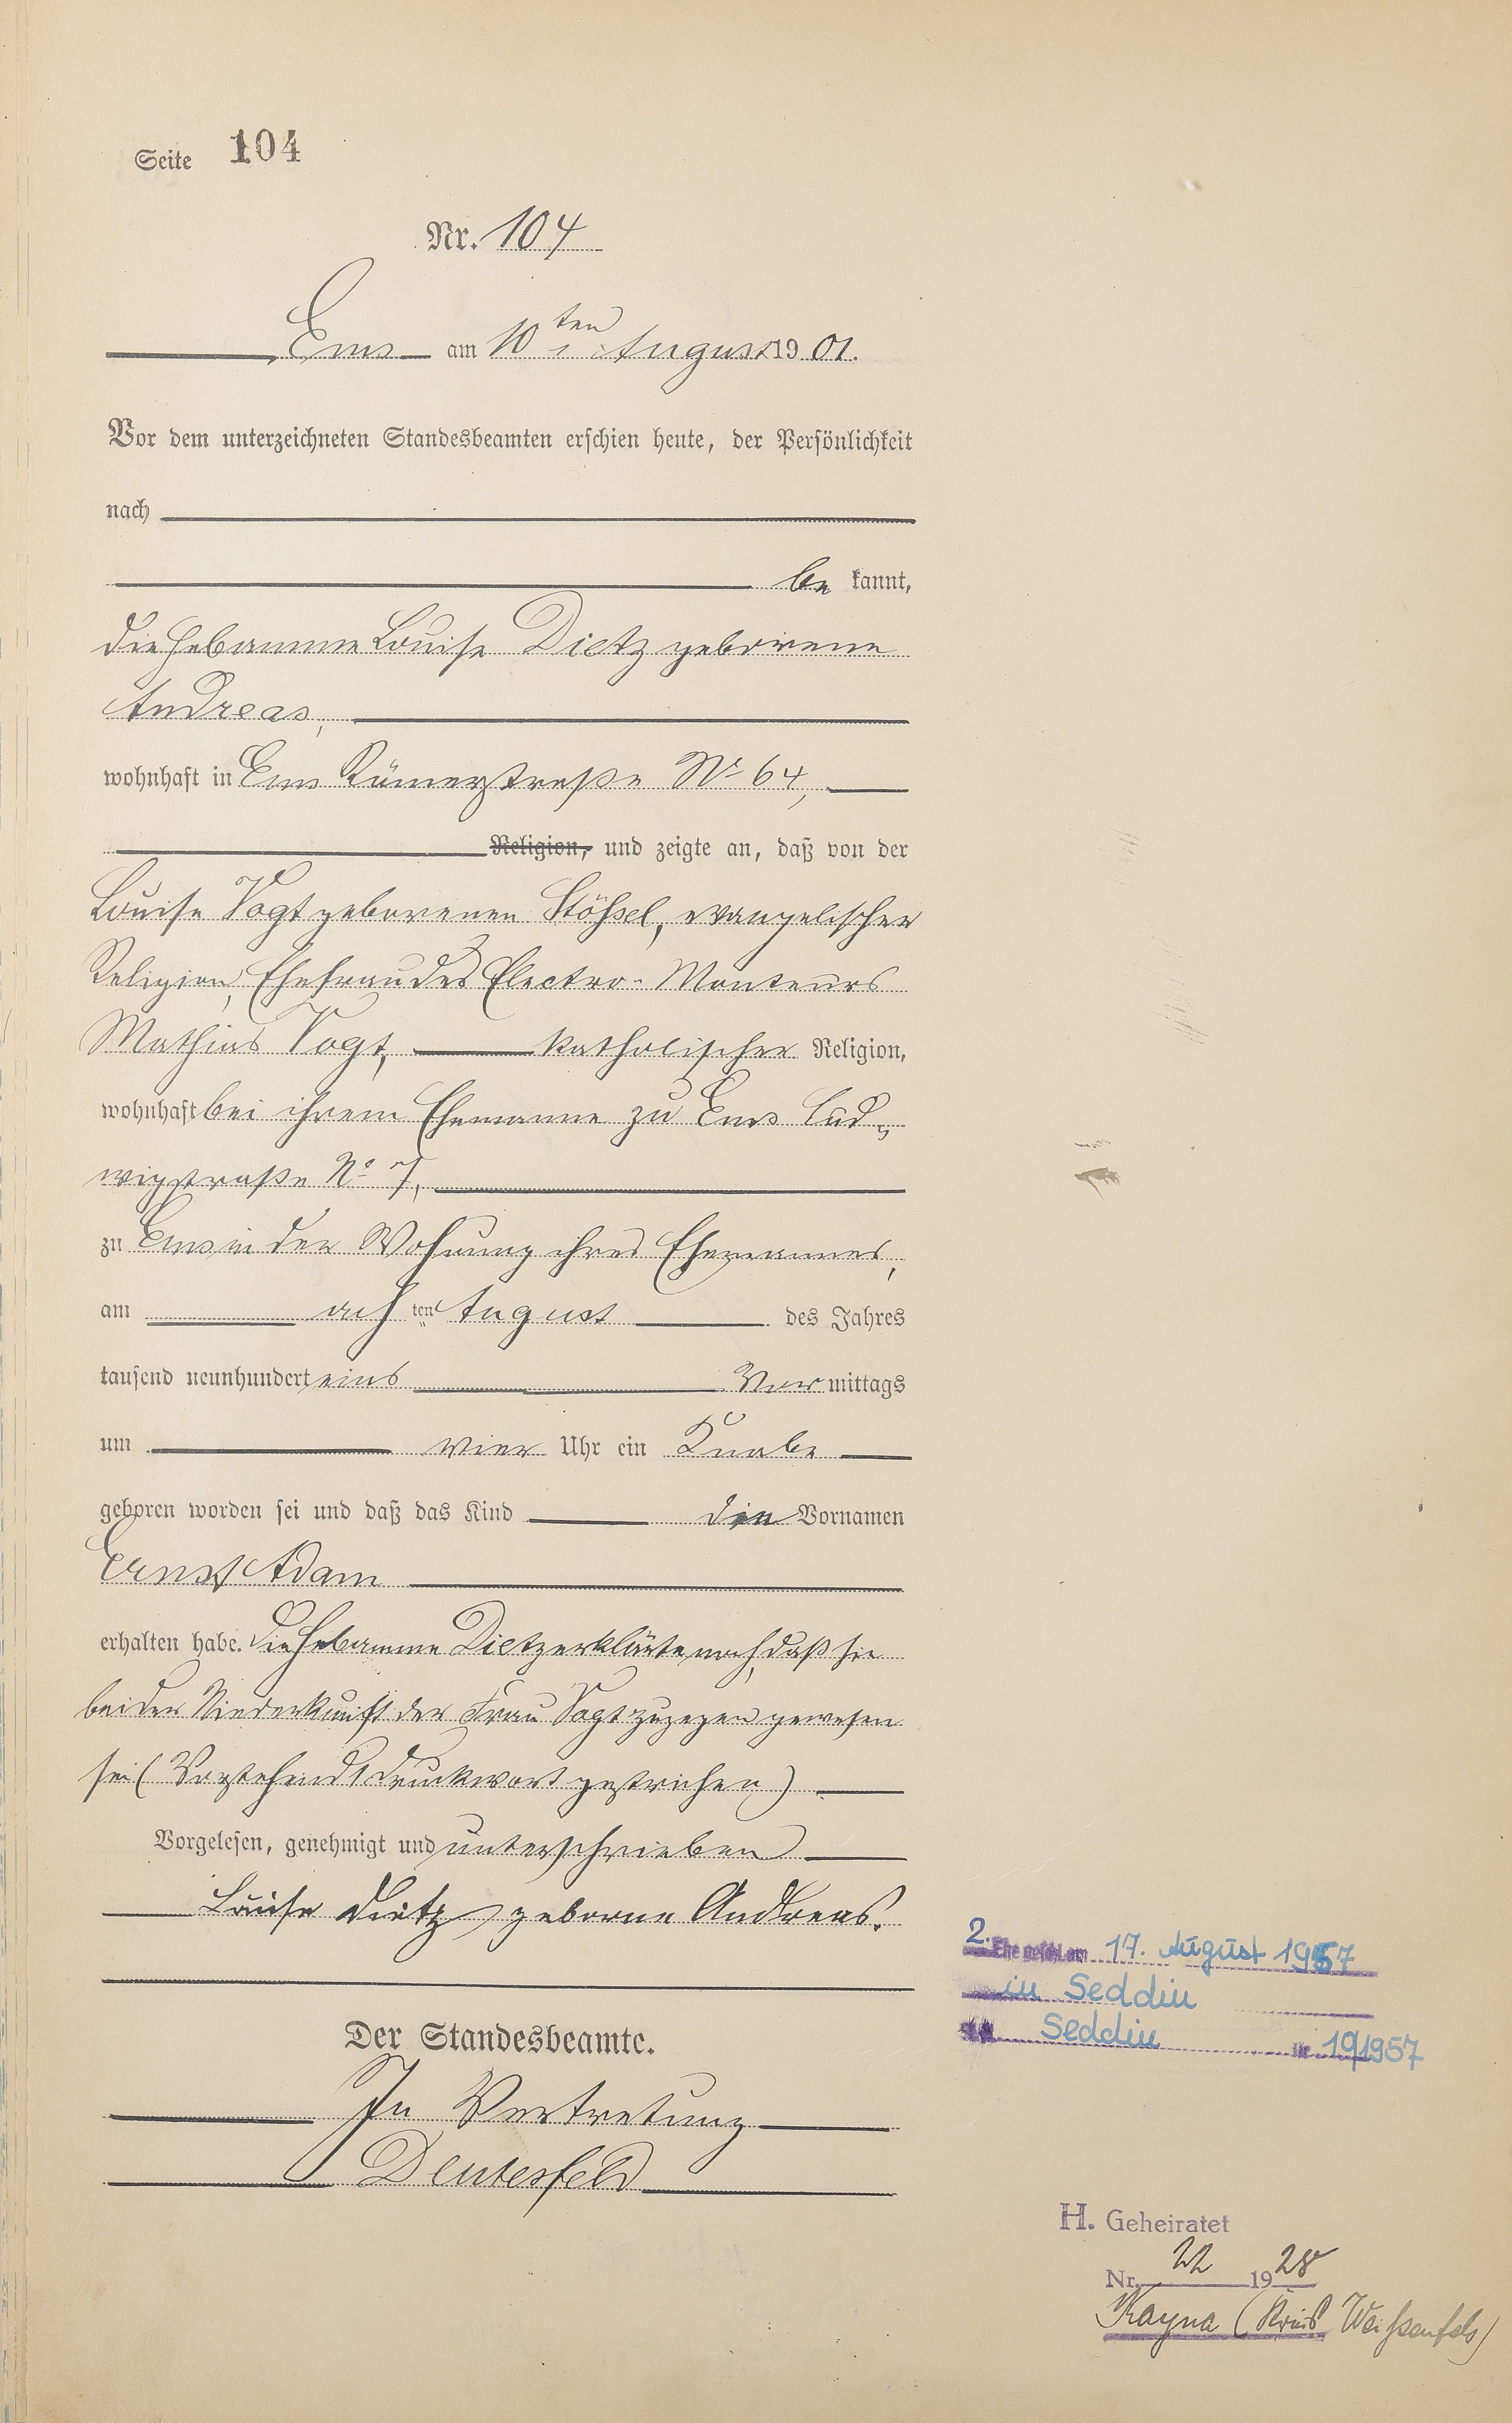 Seite 104
Nr. 104
Ems am 10ten August 1901.
Vor dem unterzeichneten Standesbeamten erschien heute, der Persönlichkeit
nach
be kannt,
die Hebamme Louise Dietz geborene
Andreas,
wohnhaft in Ems Römerstraße No 64,
Religion, und zeigte an, daß von der
Louise Vogt geborenen Stößel, evangelischer
Religion, Ehefrau des Electro-Monteurs
Mathias Vogt, katholischer Religion,
wohnhaft bei ihrem Ehemanne zu Ems Lud-
wigstraße No 7,
zu Ems in der Wohnung ihres Ehemannes,
am achten August des Jahres
tausend neunhundert eins Vor mittags
um vier Uhr ein Knabe
geboren worden sei und daß das Kind die Vornamen
Ernst Adam
erhalten habe. Die Hebamme Dietz erklärte noch, daß sie
bei der Niederkunft der Frau Vogt zugegen gewesen
sei (Vorstehend 1 Druckwort gestrichen)
Vorgelesen, genehmigt und unterschrieben
Louise Dietz geborne Andreas.
Der Standesbeamte.
In Vertretung
Deutesfeld
2. Ehe geschl. am 17. August 1957
in Seddin
Seddin Nr. 19/1957
H. Geheiratet
Nr. 22 1928
Kayna (Kreis Weißenfels)